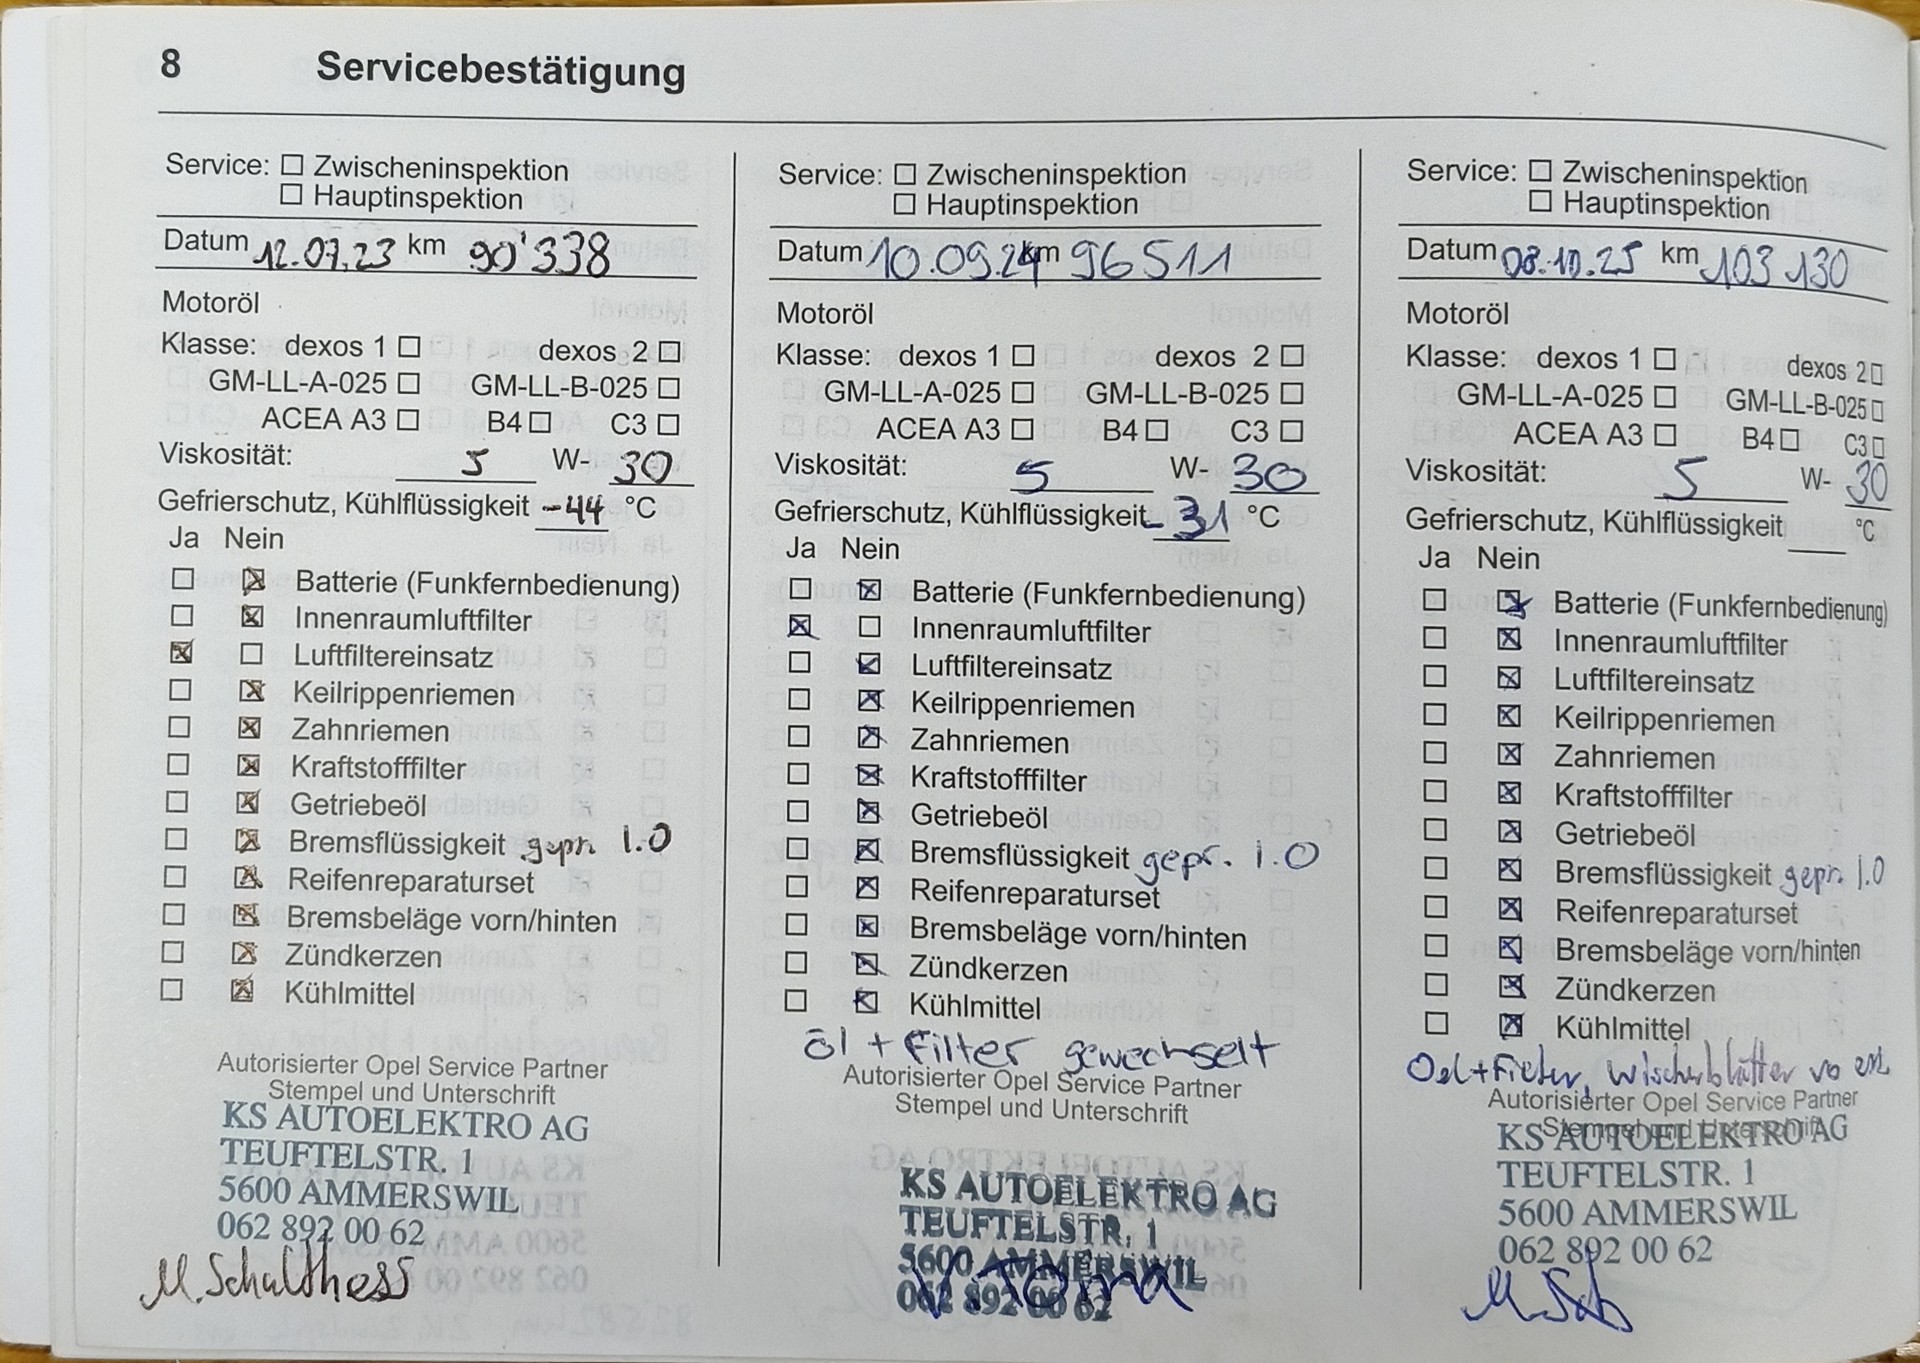 8 Servicebestätigung
Service: ☐ Zwischeninspektion
☐ Hauptinspektion
Datum 12.07.23 km 90'338
Motoröl
Klasse: dexos 1 ☐ dexos 2 ☐
GM-LL-A-025 ☐ GM-LL-B-025 ☐
ACEA A3 ☐ B4 ☐ C3 ☐
Viskosität: 5 W- 30
Gefrierschutz, Kühlflüssigkeit -44 °C
Ja Nein
☐ ☒ Batterie (Funkfernbedienung)
☐ ☒ Innenraumluftfilter
☒ ☐ Luftfiltereinsatz
☐ ☒ Keilrippenriemen
☐ ☒ Zahnriemen
☐ ☒ Kraftstofffilter
☐ ☒ Getriebeöl
☐ ☒ Bremsflüssigkeit gepr. 1.0
☐ ☒ Reifenreparaturset
☐ ☒ Bremsbeläge vorn/hinten
☐ ☒ Zündkerzen
☐ ☒ Kühlmittel
Autorisierter Opel Service Partner
Stempel und Unterschrift
KS AUTOELEKTRO AG
TEUFTELSTR. 1
5600 AMMERSWIL
062 892 00 62
M. Schulthess
Service: ☐ Zwischeninspektion
☐ Hauptinspektion
Datum 10.09.24 km 96511
Motoröl
Klasse: dexos 1 ☐ dexos 2 ☐
GM-LL-A-025 ☐ GM-LL-B-025 ☐
ACEA A3 ☐ B4 ☐ C3 ☐
Viskosität: 5 W- 30
Gefrierschutz, Kühlflüssigkeit -31 °C
Ja Nein
☐ ☒ Batterie (Funkfernbedienung)
☒ ☐ Innenraumluftfilter
☐ ☒ Luftfiltereinsatz
☐ ☒ Keilrippenriemen
☐ ☒ Zahnriemen
☐ ☒ Kraftstofffilter
☐ ☒ Getriebeöl
☐ ☒ Bremsflüssigkeit gepr. 1.0
☐ ☒ Reifenreparaturset
☐ ☒ Bremsbeläge vorn/hinten
☐ ☒ Zündkerzen
☐ ☒ Kühlmittel
öl + Filter gewechselt
Autorisierter Opel Service Partner
Stempel und Unterschrift
KS AUTOELEKTRO AG
TEUFTELSTR. 1
5600 AMMERSWIL
062 892 00 62
Service: ☐ Zwischeninspektion
☐ Hauptinspektion
Datum 08.10.25 km 103 130
Motoröl
Klasse: dexos 1 ☐ dexos 2 ☐
GM-LL-A-025 ☐ GM-LL-B-025 ☐
ACEA A3 ☐ B4 ☐ C3 ☐
Viskosität: 5 W- 30
Gefrierschutz, Kühlflüssigkeit °C
Ja Nein
☐ ☒ Batterie (Funkfernbedienung)
☐ ☒ Innenraumluftfilter
☐ ☒ Luftfiltereinsatz
☐ ☒ Keilrippenriemen
☐ ☒ Zahnriemen
☐ ☒ Kraftstofffilter
☐ ☒ Getriebeöl
☐ ☒ Bremsflüssigkeit gepr. 1.0
☐ ☒ Reifenreparaturset
☐ ☒ Bremsbeläge vorn/hinten
☐ ☒ Zündkerzen
☐ ☒ Kühlmittel
Oel + Filter, Wischerblätter vo
Autorisierter Opel Service Partner
Stempel und Unterschrift
KS AUTOELEKTRO AG
TEUFTELSTR. 1
5600 AMMERSWIL
062 892 00 62